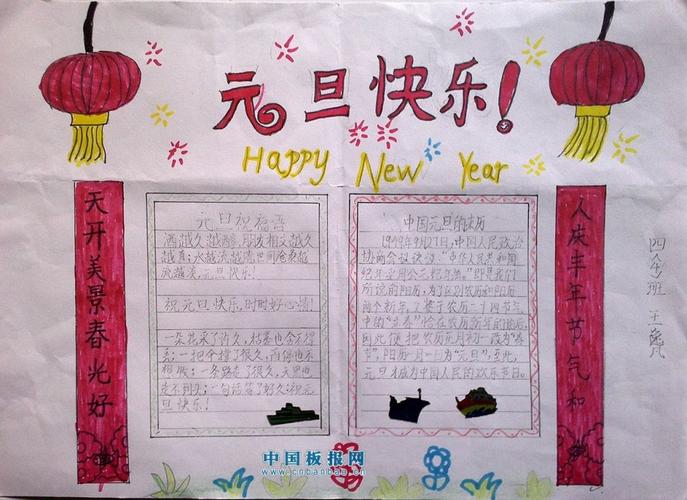 元旦快乐!
Happy New Year
天开美景春光好
元旦祝福语
酒越久越醇,朋友相交越久
越真;水越流越
流越淡,元旦快乐!
祝元旦快乐,时时好心情!
一朵花采了许久,枯萎也舍不得
丢;一把伞撑了很久,雨停也不
想收;一条路走了很久,天黑也
走不到头;一句话等了好久:祝元
旦快乐!
中国元旦的来历
1949年9月27日,中国人民政治
协商会议决议:"中华人民共和国
纪年采用公元纪年法。"即是我们
所说的阳历,为了区别农历和阳历
两个新年,又鉴于农历二十四节气
中的"立春"恰在农历新年的前后,
因此便把农历正月初一改为"春
节",阳历一月一日为"元旦",至此,
元旦才成为中国人民的欢乐节日。
人庆丰年节气和
四年班 王
中国板报网
www.cnbanbao.cn